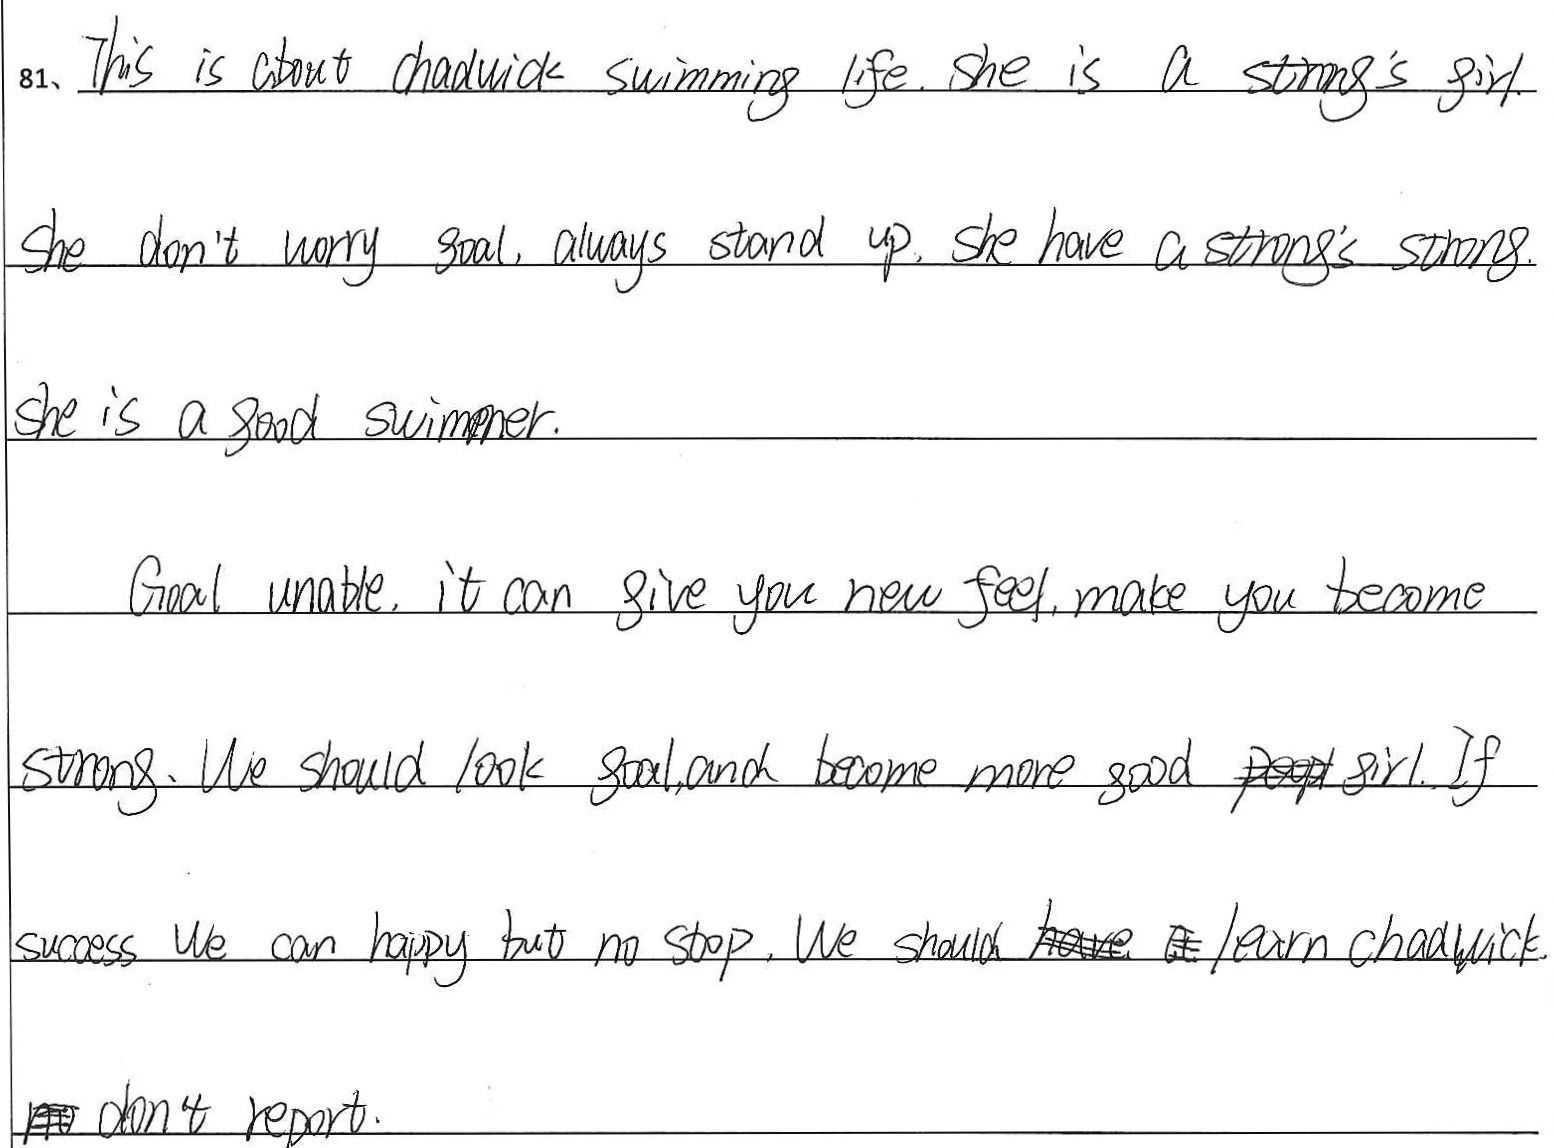 81、This is about chadwick swimming life. She is a strong's girl.
She don't worry goal, always stand up. She have a strong's strong.
She is a good swimmer.
Goal unable. it can give you new feel, make you become
strong. We should look goal, and become more good girl. If
success We can happy but no stop. We should learn chadwick.
don't report.